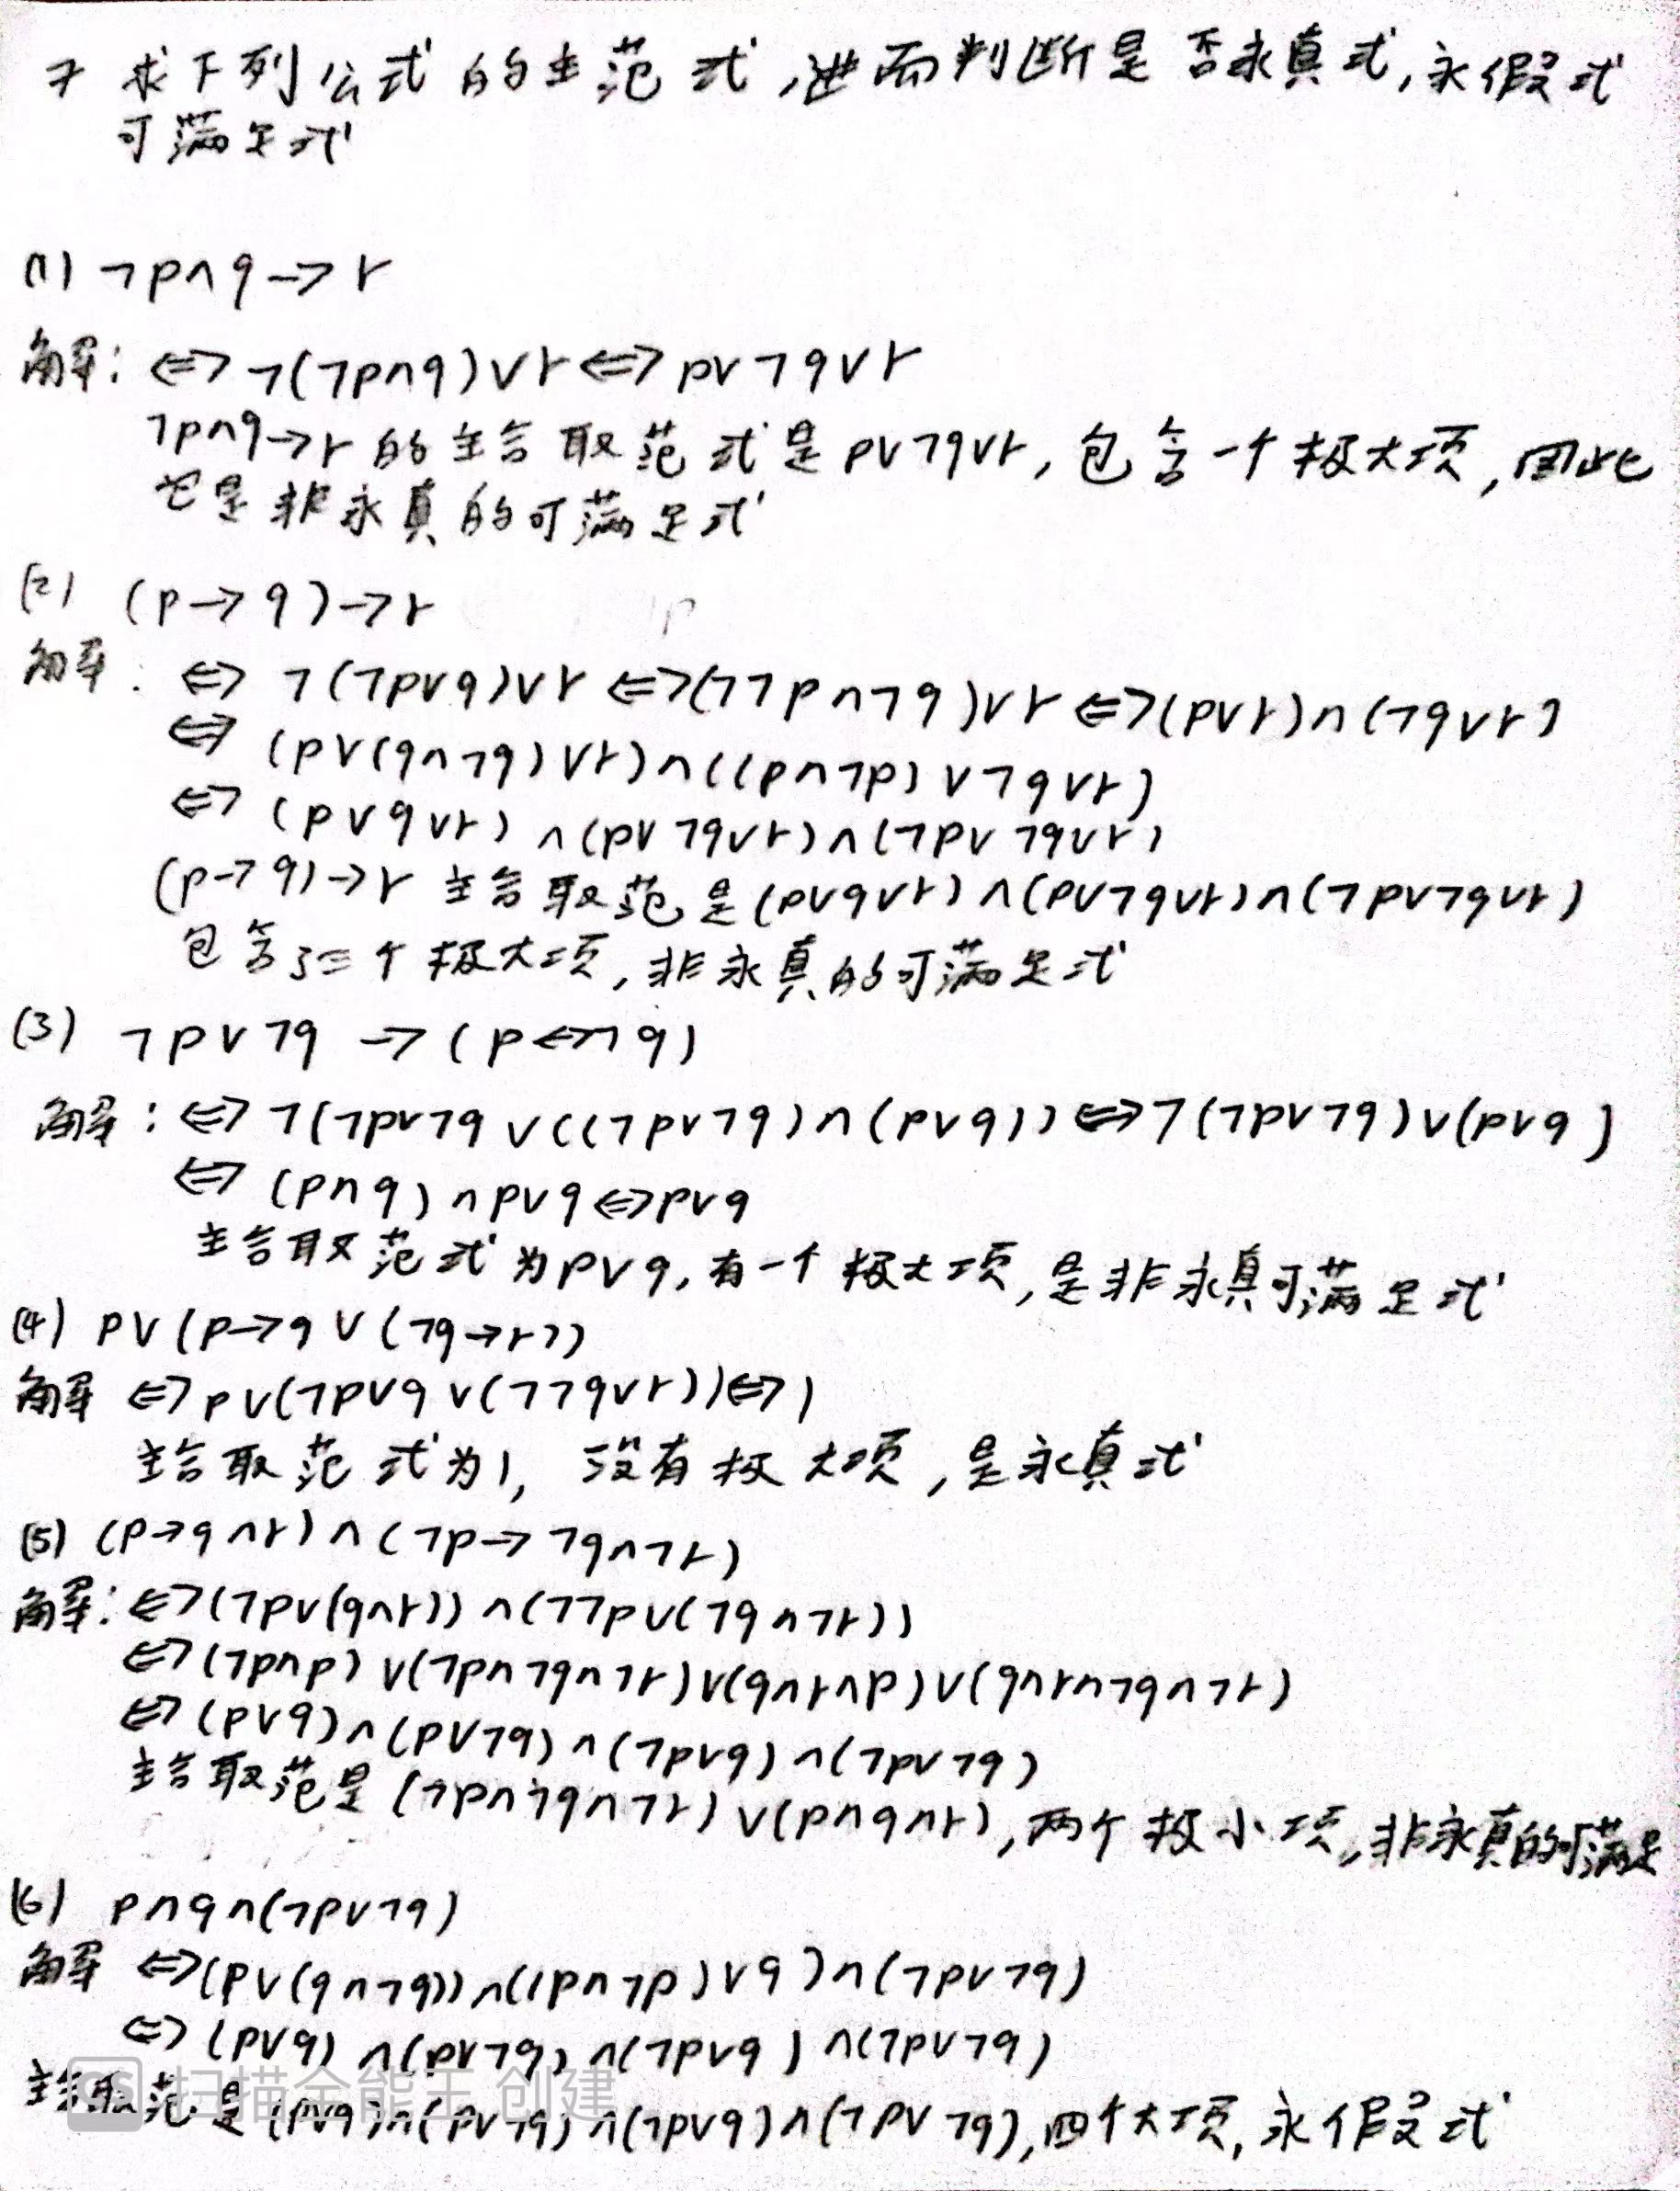 7 求下列公式的主范式,进而判断是否永真式,永假式
可满足式
(1) ¬p∧q→r
解: ⇔¬(¬p∧q)∨r⇔p∨¬q∨r
¬p∧q→r的主合取范式是p∨¬q∨r,包含一个极大项,因此
它是非永真的可满足式
(2) (p→q)→r
解: ⇔ ¬(¬p∨q)∨r⇔(¬¬p∧¬q)∨r⇔(p∨r)∧(¬q∨r)
⇔ (p∨(q∧¬q)∨r)∧((p∧¬p)∨¬q∨r)
⇔ (p∨q∨r)∧(p∨¬q∨r)∧(¬p∨¬q∨r)
(p→q)→r 主合取范是(p∨q∨r)∧(p∨¬q∨r)∧(¬p∨¬q∨r)
包含了三个极大项,非永真的可满足式
(3) ¬p∨¬q →(p↔¬q)
解: ⇔¬(¬p∨¬q∨((¬p∨¬q)∧(p∨q))⇔¬(¬p∨¬q)∨(p∨q)
⇔ (p∧q)∧p∨q⇔p∨q
主合取范式为p∨q,有一个极大项,是非永真可满足式
(4) p∨(p→q∨(¬q→r))
解 ⇔p∨(¬p∨q∨(¬¬q∨r))⇔1
主合取范式为1, 没有极大项,是永真式
(5) (p→q∧r)∧(¬p→¬q∧¬r)
解: ⇔(¬p∨(q∧r))∧(¬¬p∨(¬q∧¬r))
⇔(¬p∧p)∨(¬p∧¬q∧¬r)∨(q∧r∧p)∨(q∧r∧¬q∧¬r)
⇔(p∨q)∧(p∨¬q)∧(¬p∨q)∧(¬p∨¬q)
主合取范是(¬p∧¬q∧¬r)∨(p∧q∧r),两个极小项,非永真的可满足
(6) p∧q∧(¬p∨¬q)
解 ⇔(p∨(q∧¬q))∧((p∧¬p)∨q)∧(¬p∨¬q)
⇔ (p∨q)∧(p∨¬q)∧(¬p∨q)∧(¬p∨¬q)
主合取范是(p∨q)∧(p∨¬q)∧(¬p∨q)∧(¬p∨¬q),四个大项,永假式
CS 扫描全能王 创建